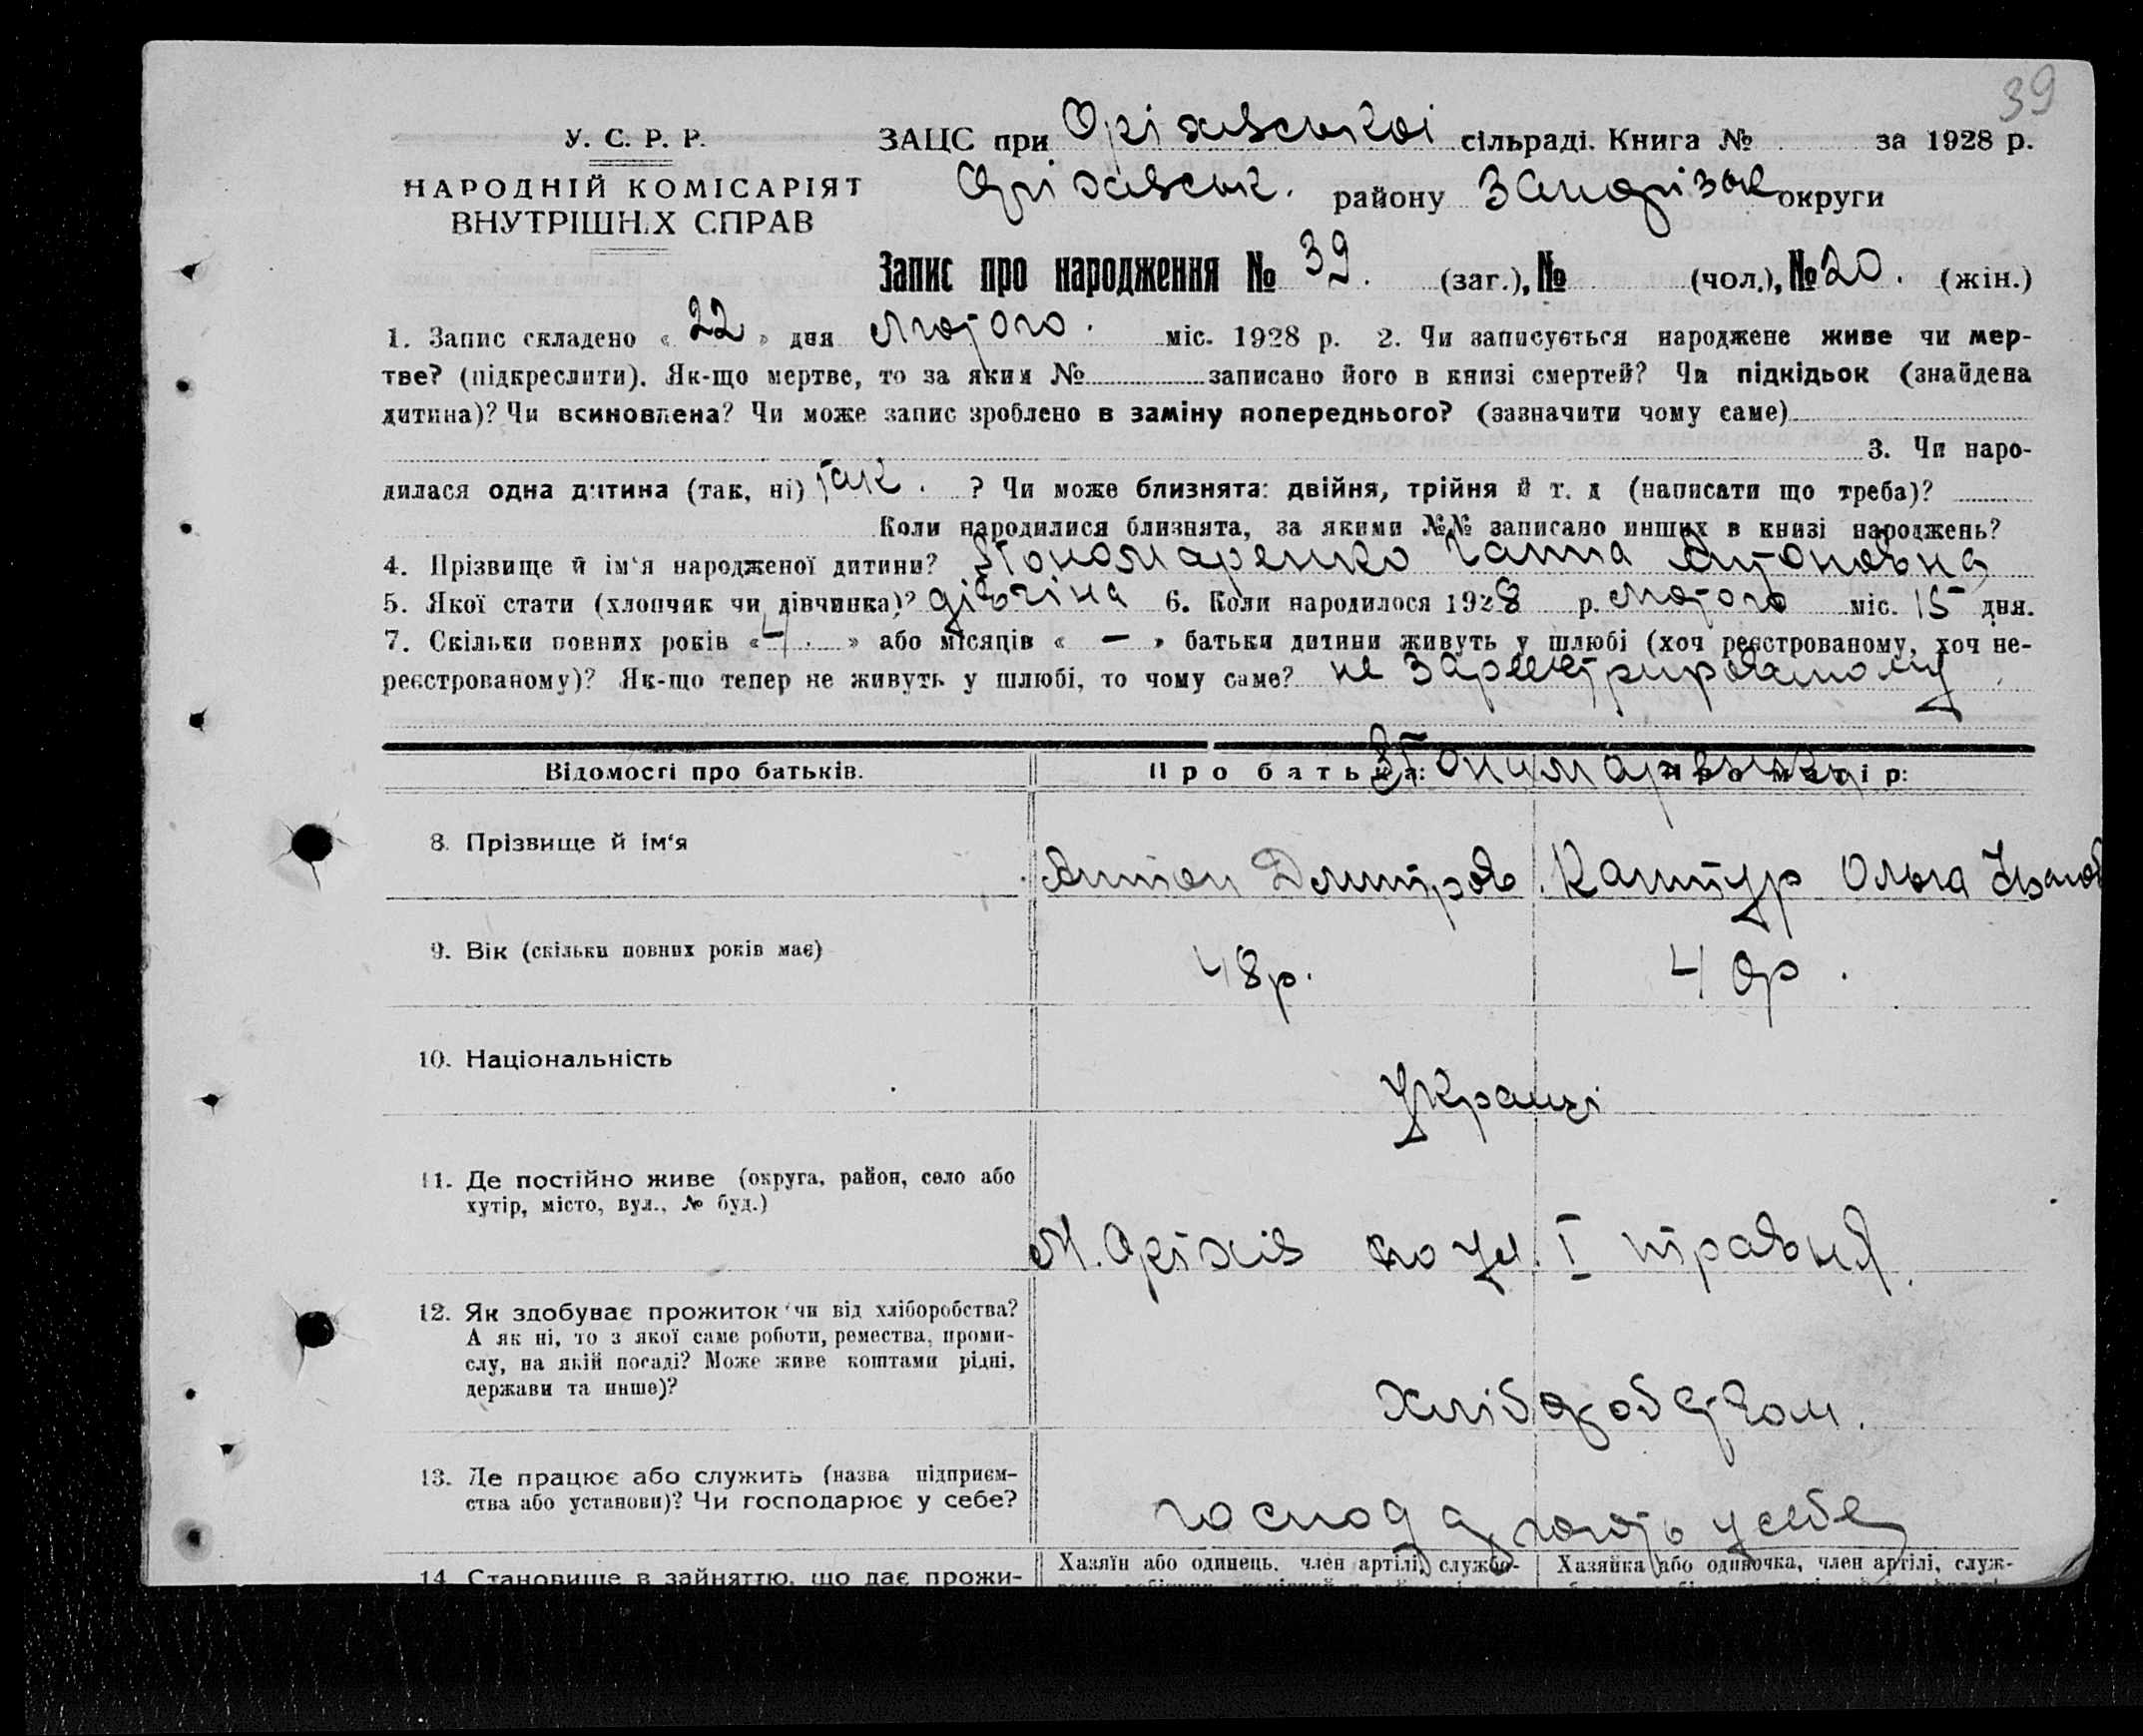 39
У. С. Р. Р.
НАРОДНІЙ КОМІСАРІЯТ
ВНУТРІШНІХ СПРАВ
ЗАЦС при Оріхівській сільраді. Книга № за 1928 р.
Оріхівськ. району Запоріжок округи
Запис про народження № 39. (заг.), № (чол.), № 20. (жін.)
1. Запис складено « 22 » дня лютого. міс. 1928 р. 2. Чи записується народжене живе чи мер-
тве? (підкреслити). Як-що мертве, то за яким № записано його в книзі смертей? Чи підкідьок (знайдена
дитина)? Чи всиновлена? Чи може запис зроблено в заміну попереднього? (зазначити чому саме)
3. Чи наро-
дилася одна дитина (так, ні) так. ? Чи може близнята: двійня, трійня й т. д (написати що треба)?
Коли народилися близнята, за якими №№ записано инших в книзі народжень?
4. Прізвище й ім‘я народженої дитини? Пономаренко Ганна Антоновна
5. Якої стати (хлопчик чи дівчинка)? дівчіна 6. Коли народилося 1928 р. лютого міс. 15 дня.
7. Скільки повних років « 4. » або місяців « — » батьки дитини живуть у шлюбі (хоч реєстрованому, хоч не-
реєстрованому)? Як-що тепер не живуть у шлюбі, то чому саме? не
Відомості про батьків. Про батька: Про матір:
8. Прізвище й ім‘я Антон Дмитров. Кантур Ольга Іванов
9. Вік (скільки повних років має) 48 р. 40 р.
10. Національність Українці
11. Де постійно живе (округа, район, село або
хутір, місто, вул., № буд.)
М. Оріхів по ул. I травня.
12. Як здобуває прожиток чи від хліборобства?
А як ні, то з якої саме роботи, ремества, проми-
слу, на якій посаді? Може живе коштами рідні,
держави та инше)?
хліборобством.
13. Де працює або служить (назва підприєм-
ства або установи)? Чи господарює у себе?
господарюють у себе
14. Становище в зайняттю, що дає прожи-
Хазяїн або одинець, член артілі, службо-
Хазяйка або одиночка, член артілі, служ-